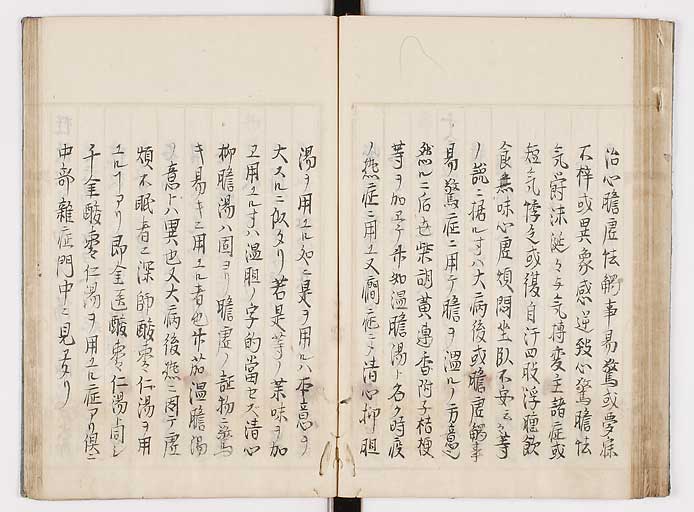 治心膽虚怯觸事易驚或夢寐
不祥或異象惑逆致心驚膽怯
気欝涎与気搏変生諸症或
短気悸乏或復自汗四肢浮瘇飲
食無味心虚煩悶坐臥不安云々等
ノ説ニ據ル寸ハ大病後或膽虚觸事
易驚症ニ用テ膽ヲ温ルノ方意
然ルニ后世柴胡黄連香附子桔梗
等ヲ加
ノ懸症ニ用ユ又癇症ニテ清心抑胆
湯ヲ用ユル如ニ是ヲ用ルハ本意ヲ
大スルニ似タリ若是等ノ薬味ヲ加
ヱ用ユル寸ハ温胆ノ字的當セズ清心
抑膽湯ハ固ヨリ膽虚ノ証物ニ驚
キ易キニ用ユル者也竹茹温膽湯
ノ意トハ異也又大病後懸ニ因テ虚
煩不眠者ニ深師酸棗仁湯ヲ用
ユルアリ即金匱酸棗仁湯上同シ
千金酸棗仁湯ヲ用ユル症アリ倶ニ
中部雜症門中ニ見ヱタリ